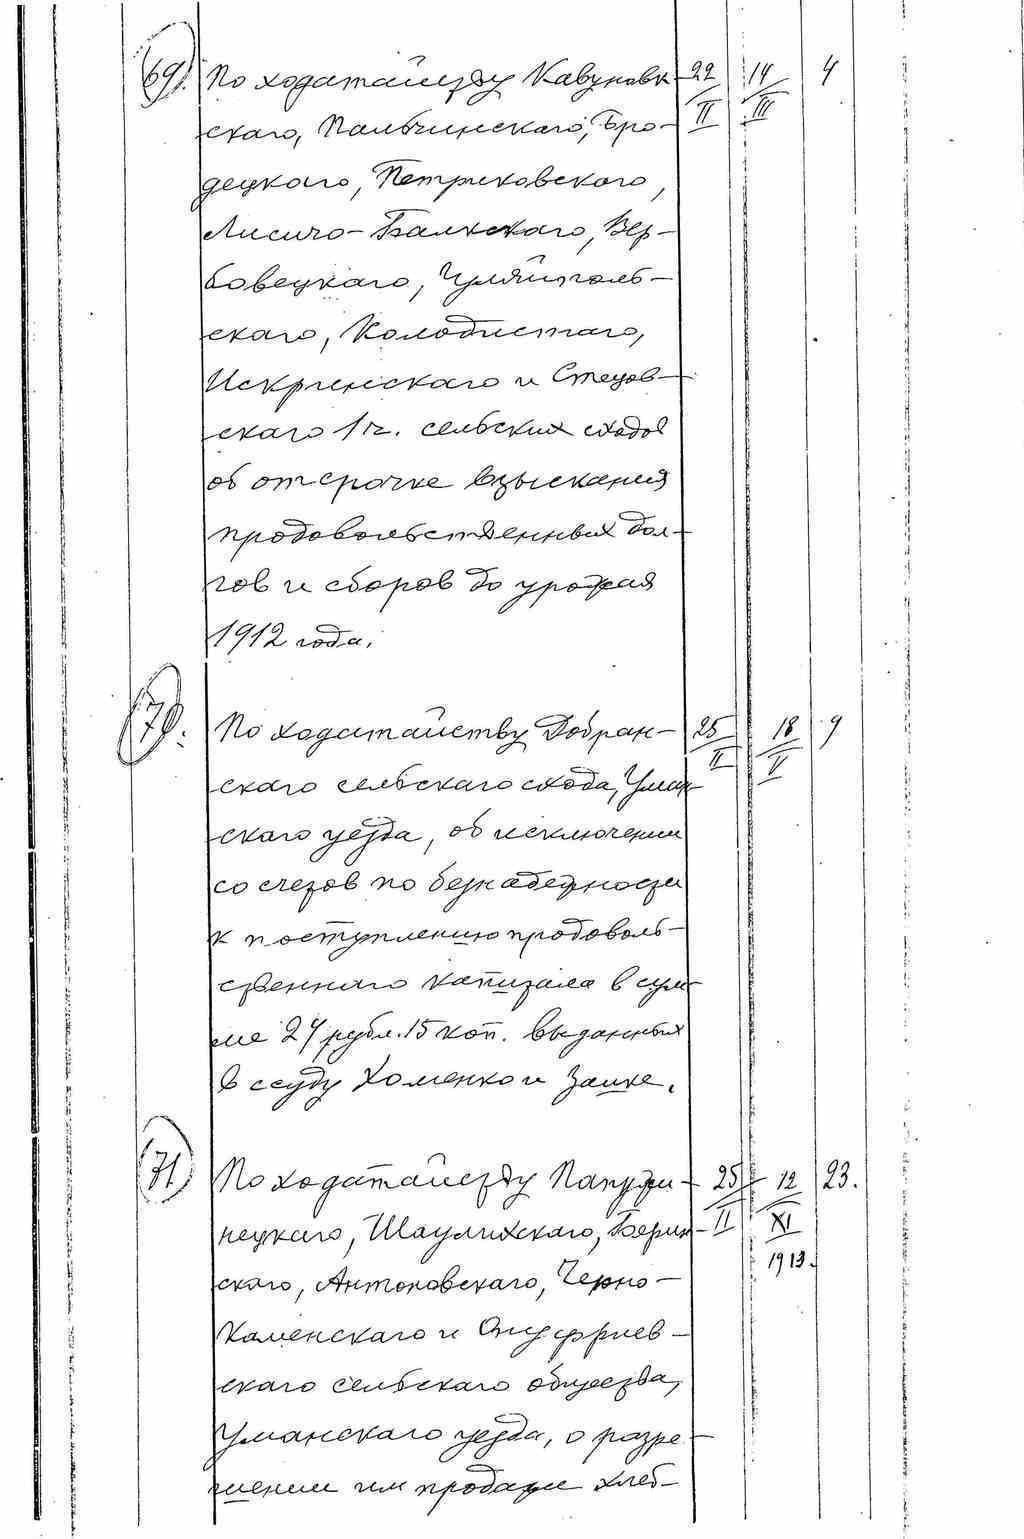 69. По ходатайству Кавуновк- 22/II 14/III 4
скаго, Пальчинскаго, Бро-
децкого, Петриковского,
Лисичо-Балкскаго, Вер-
бовецкаго,
скаго, Колодистаго,
Искринскаго и Стецов-
скаго 1ч. сельских сходов
об отсрочке взыскания
продовольственных дол-
гов и сборов до урожая
1912 года.
70. По ходатайству Добран- 25/II 18/V 9
скаго сельскаго схода, Уман-
скаго уезда, об исключении
со счетов по безнадежности
к поступлению продоволь-
ственного капитала в сум-
ме 24 рубл. 15 коп. выданных
в ссуду Хоменко и Заике.
71. По ходатайству Папужи- 25/II 12/XI 1913. 23.
нецкаго, Шаулихскаго, Берин-
скаго, Антоновскаго, Черно-
Каменскаго и Онуфриев-
скаго сельскаго общества,
Уманскаго уезда, о разре-
шении им продажи хлеб-